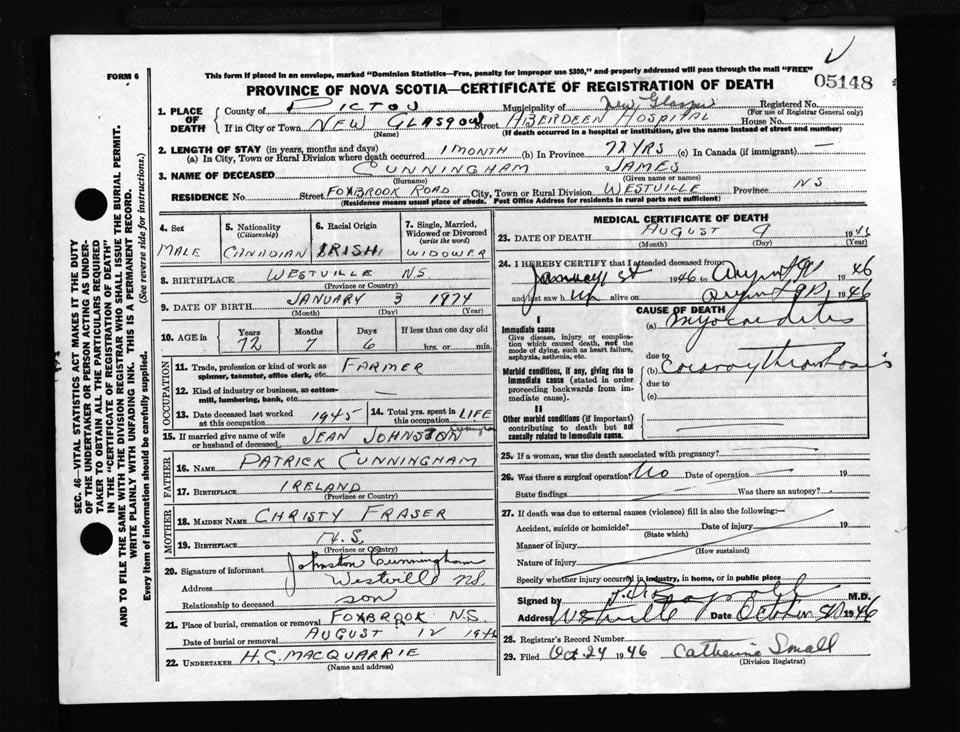 FORM 6
This form if placed in an envelope, marked "Dominion Statistics—Free, penalty for improper use $300," and properly addressed will pass through the mail "FREE"
05148
PROVINCE OF NOVA SCOTIA—CERTIFICATE OF REGISTRATION OF DEATH
1. PLACE OF DEATH
County of PICTOU Municipality of New Glasgow Registered No.
(For use of Registrar General only)
If in City or Town NEW GLASGOW Street ABERDEEN HOSPITAL House No.
(Name) (If death occurred in a hospital or institution, give the name instead of street and number)
2. LENGTH OF STAY (in years, months and days)
(a) In City, Town or Rural Division where death occurred 1 MONTH (b) In Province 72 YRS (c) In Canada (if immigrant) —
3. NAME OF DECEASED CUNNINGHAM JAMES
(Surname) (Given name or names)
RESIDENCE No. Street FOXBROOK ROAD City, Town or Rural Division WESTVILLE Province NS
(Residence means usual place of abode. Post Office Address for residents in rural parts not sufficient)
4. Sex MALE
5. Nationality (Citizenship) CANADIAN
6. Racial Origin IRISH
7. Single, Married, Widowed or Divorced (write the word) WIDOWER
8. BIRTHPLACE WESTVILLE NS
(Province or Country)
9. DATE OF BIRTH JANUARY 3 1874
(Month) (Day) (Year)
10. AGE in Years 72 Months 7 Days 6 If less than one day old hrs. or min.
OCCUPATION
11. Trade, profession or kind of work as spinner, teamster, office clerk, etc. FARMER
12. Kind of industry or business, as cotton-mill, lumbering, bank, etc. —
13. Date deceased last worked at this occupation 1945
14. Total yrs. spent in this occupation LIFE
15. If married give name of wife or husband of deceased JEAN JOHNSTON
FATHER
16. NAME PATRICK CUNNINGHAM
17. BIRTHPLACE IRELAND
(Province or Country)
MOTHER
18. MAIDEN NAME CHRISTY FRASER
19. BIRTHPLACE N.S.
(Province or Country)
20. Signature of informant Johnston Cunningham
Address Westville NS.
Relationship to deceased son
21. Place of burial, cremation or removal FOXBROOK N.S.
Date of burial or removal AUGUST 12 1946
22. UNDERTAKER H.G. MACQUARRIE
(Name and address)
MEDICAL CERTIFICATE OF DEATH
23. DATE OF DEATH AUGUST 9 1946
(Month) (Day) (Year)
24. I HEREBY CERTIFY that I attended deceased from:
January 1st 1946 to August 9 1946
and last saw h alive on August 9 1946
CAUSE OF DEATH
I
Immediate cause
Give disease, injury or complication which caused death, not the mode of dying, such as heart failure, asphyxia, asthenia, etc.
(a) myocarditis
due to
Morbid conditions, if any, giving rise to immediate cause (stated in order proceeding backwards from immediate cause).
(b) coronary thrombosis
due to
(c)
II
Other morbid conditions (if important) contributing to death but not causally related to immediate cause.
25. If a woman, was the death associated with pregnancy?
26. Was there a surgical operation? No Date of operation 19
State findings Was there an autopsy?
27. If death was due to external causes (violence) fill in also the following:—
Accident, suicide or homicide? Date of injury 19
(State which)
Manner of injury
(How sustained)
Nature of injury
Specify whether injury occurred in industry, in home, or in public place
Signed by M.D.
Address Westville Date October 1946
28. Registrar's Record Number
29. Filed Oct 24 1946 Catherine Small
(Division Registrar)
SEC. 46—VITAL STATISTICS ACT MAKES IT THE DUTY OF THE UNDERTAKER OR PERSON ACTING AS UNDERTAKER TO OBTAIN ALL THE PARTICULARS REQUIRED IN THE "CERTIFICATE OF REGISTRATION OF DEATH" AND TO FILE THE SAME WITH THE DIVISION REGISTRAR WHO SHALL ISSUE THE BURIAL PERMIT.
WRITE PLAINLY WITH UNFADING INK. THIS IS A PERMANENT RECORD.
Every item of information should be carefully supplied. (See reverse side for instructions.)